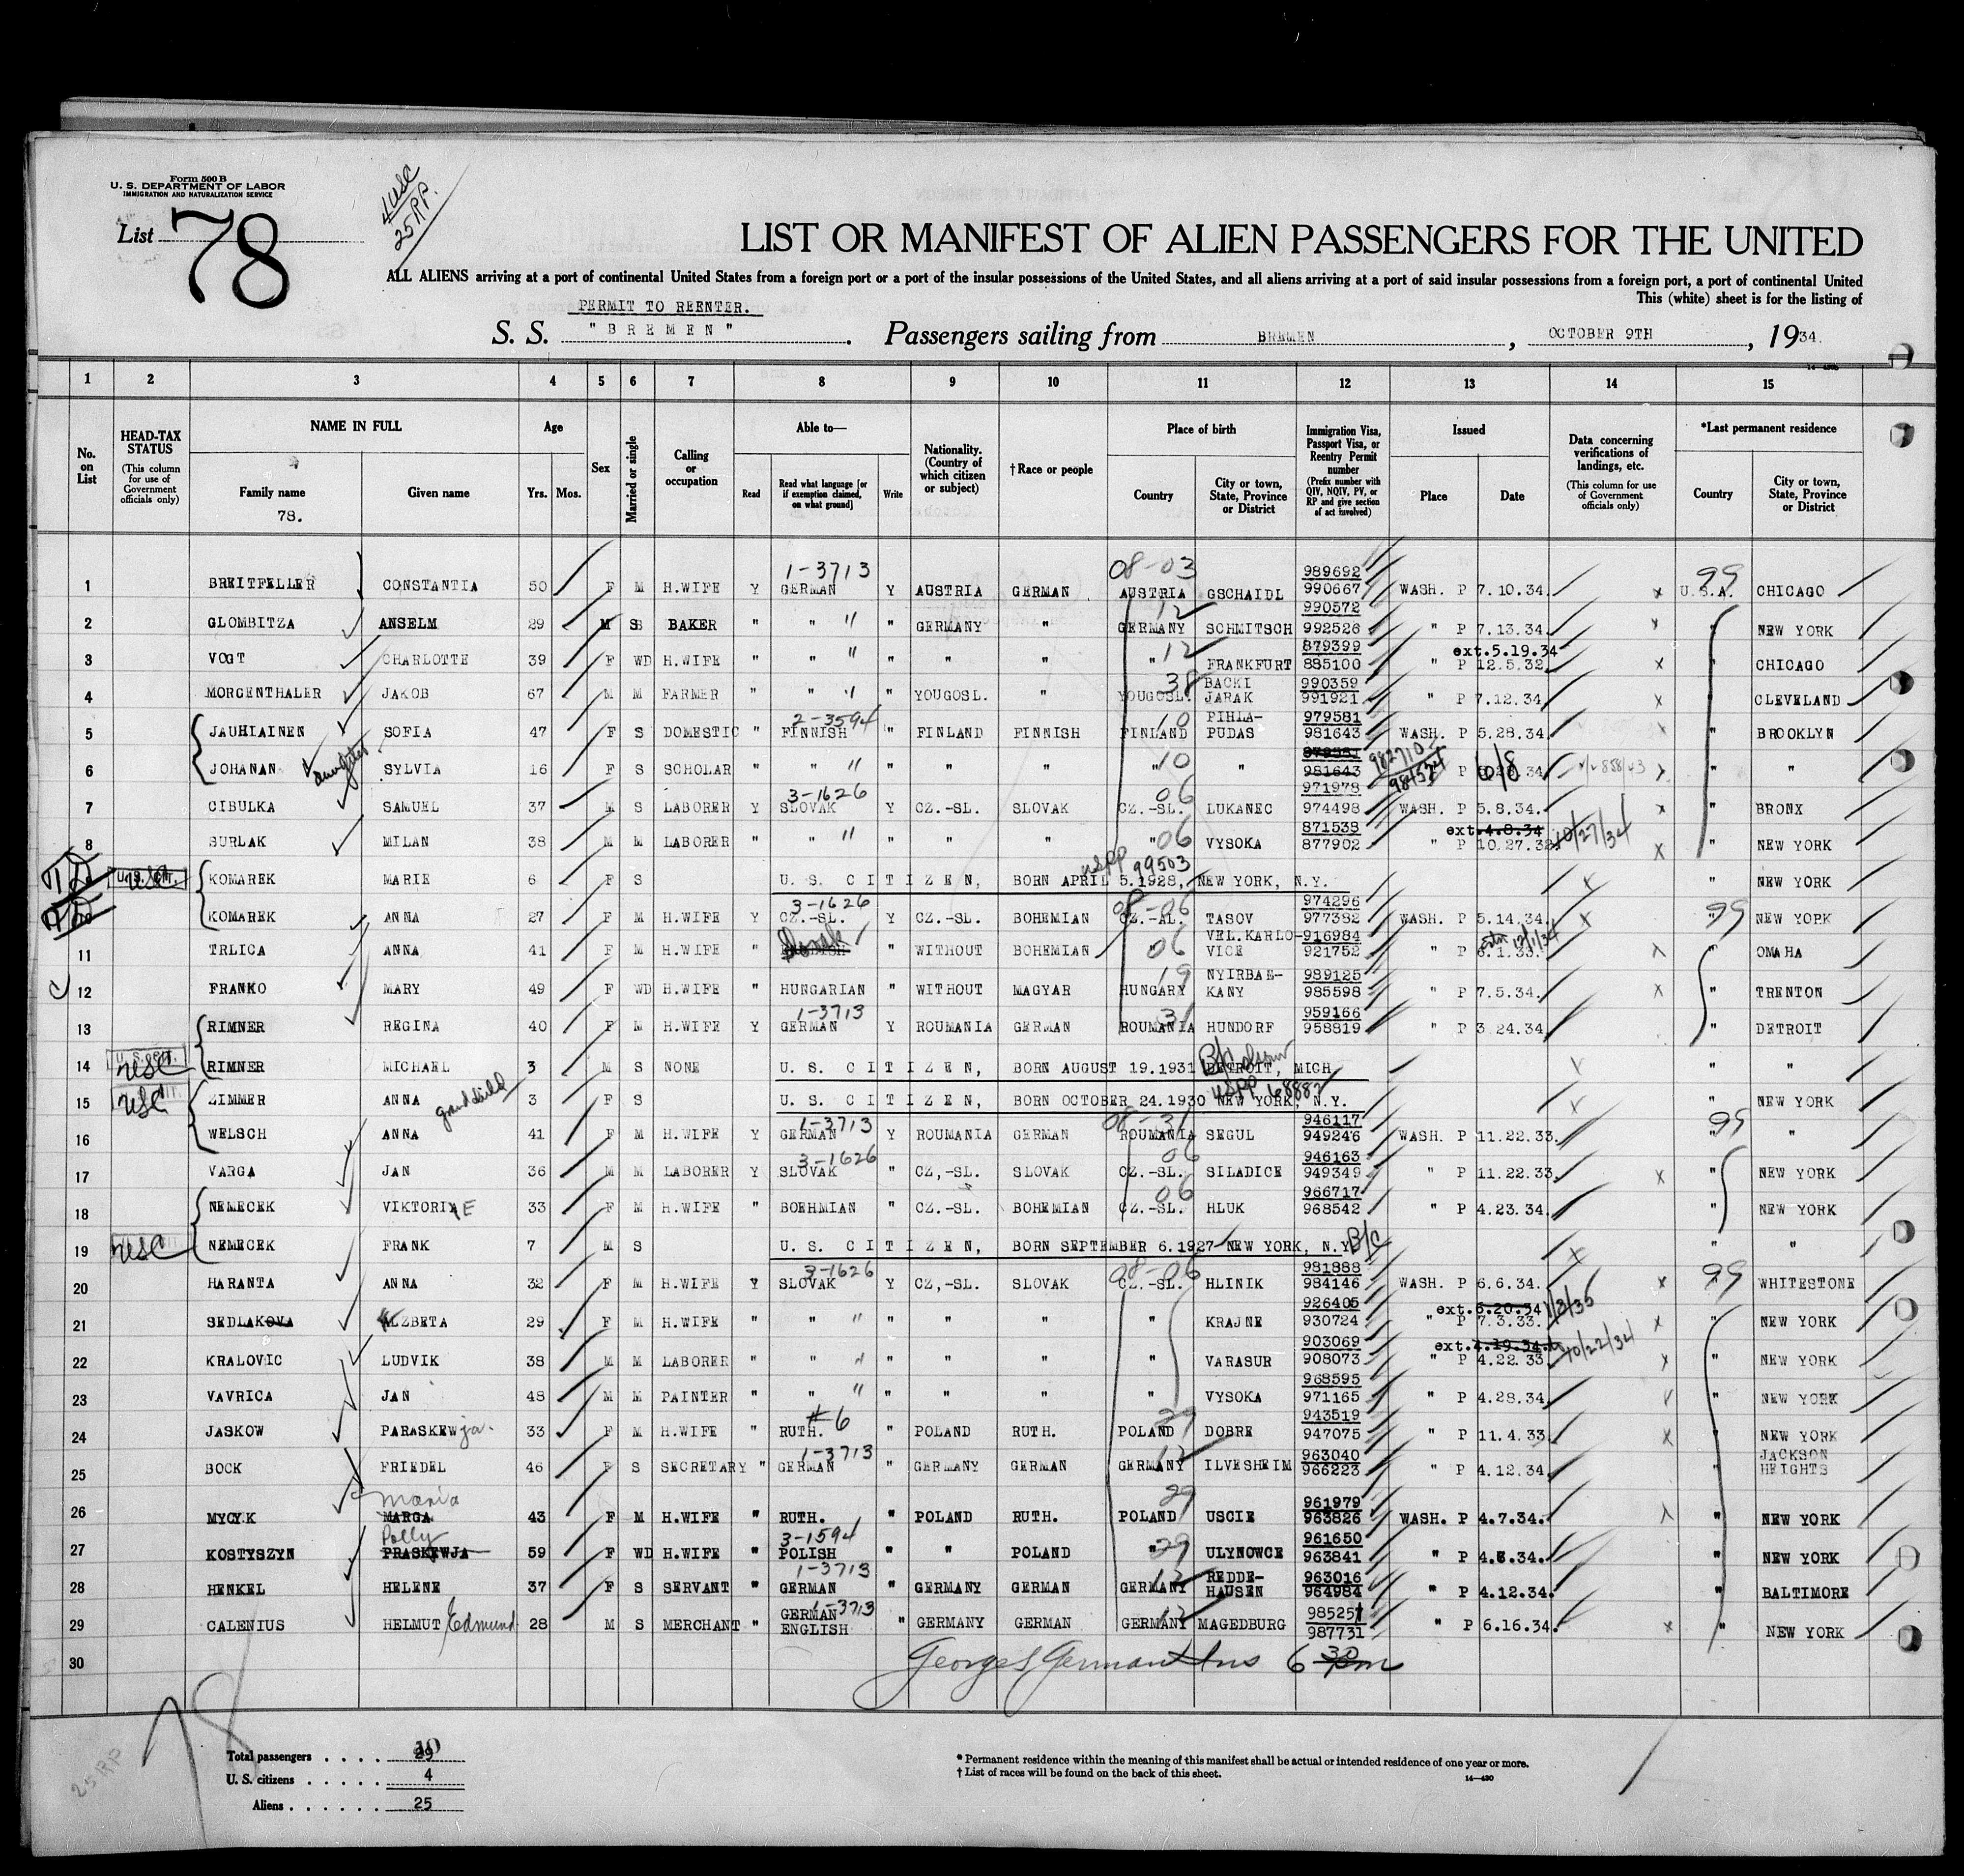 Form 500 B
U. S. DEPARTMENT OF LABOR
IMMIGRATION AND NATURALIZATION SERVICE
List 78
4 USC
25 RP.
LIST OR MANIFEST OF ALIEN PASSENGERS FOR THE UNITED
ALL ALIENS arriving at a port of continental United States from a foreign port or a port of the insular possessions of the United States, and all aliens arriving at a port of said insular possessions from a foreign port, a port of continental United
This (white) sheet is for the listing of
PERMIT TO REENTER.
S. S. "BREMEN". Passengers sailing from BREMEN, OCTOBER 9TH, 1934.
1 2 3 4 5 6 7 8 9 10 11 12 13 14 15
No. on List
HEAD-TAX STATUS (This column for use of Government officials only)
NAME IN FULL
Family name
78.
Given name
Age
Yrs. Mos.
Sex
Married or single
Calling or occupation
Able to—
Read
Read what language [or if exemption claimed, on what ground]
Write
Nationality. (Country of which citizen or subject)
† Race or people
Place of birth
Country
City or town, State, Province or District
Immigration Visa, Passport Visa, or Reentry Permit number (Prefix number with QIV, NQIV, PV, or RP and give section of act involved)
Issued
Place Date
Data concerning verifications of landings, etc. (This column for use of Government officials only)
*Last permanent residence
Country
City or town, State, Province or District
1 BREITFELLER CONSTANTIA 50 F M H.WIFE Y 1-3713 GERMAN Y AUSTRIA GERMAN 08-03 AUSTRIA GSCHAIDL 989692 990667 WASH. P 7.10.34. x 99 U.S.A. CHICAGO
2 GLOMBITZA ANSELM 29 M S BAKER " " " " GERMANY " 12 GERMANY SCHMITSCH 990572 992526 " P 7.13.34. x " NEW YORK
3 VOGT CHARLOTTE 39 F WD H.WIFE " " " " " " 12 " FRANKFURT 879399 885100 ext.5.19.34 " P 12.5.32. x " CHICAGO
4 MORGENTHALER JAKOB 67 M M FARMER " " " " YOUGOSL. " 38 YOUGOSL. BACKI JARAK 990359 991921 " P 7.12.34. x " CLEVELAND
5 JAUHIAINEN SOFIA 47 F S DOMESTIC " 2-3594 FINNISH " FINLAND FINNISH 10 FINLAND PIHLA-PUDAS 979581 981643 WASH. P 5.28.34. x " BROOKLYN
6 JOHANAN daughter SYLVIA 16 F S SCHOLAR " " " " " " 10 " " 981643 982710 98434 P 6/8 " "
7 CIBULKA SAMUEL 37 M S LABORER Y 3-1626 SLOVAK Y CZ.-SL. SLOVAK 06 CZ.-SL. LUKANEC 971978 974498 WASH. P 5.8.34. x " BRONX
8 SURLAK MILAN 38 M M LABORER " " " " " " " 06 VYSOKA 871538 877902 ext.4.8.34 " P 10.27.32 10/27/34 x " NEW YORK
USC KOMAREK MARIE 6 F S U. S. CITIZEN, BORN APRIL 5.1928, NEW YORK, N.Y. USPP 99503 x " NEW YORK
KOMAREK ANNA 27 F M H.WIFE Y 3-1626 CZ.-SL. Y CZ.-SL. BOHEMIAN 08-06 CZ.-AL. TASOV 974296 977382 WASH. P 5.14.34. x 99 " NEW YORK
11 TRLICA ANNA 41 F M H.WIFE " Slovak " WITHOUT BOHEMIAN 06 VEL.KARLO-VICE 916984 921752 " P 6.1.33. extn 12/1/34 " OMAHA
12 FRANKO MARY 49 F WD H.WIFE " HUNGARIAN " WITHOUT MAGYAR 19 HUNGARY NYIRBAE-KANY 989125 985598 " P 7.5.34. x " TRENTON
13 RIMNER REGINA 40 F M H.WIFE Y 1-3713 GERMAN Y ROUMANIA GERMAN 31 ROUMANIA HUNDORF 959166 958819 " P 3.24.34. " DETROIT
14 USC RIMNER MICHAEL 3 M S NONE U. S. CITIZEN, BORN AUGUST 19.1931 DETROIT, MICH B/C " "
15 USC ZIMMER ANNA grandchild 3 F S U. S. CITIZEN, BORN OCTOBER 24.1930 NEW YORK, N.Y. USPP 68887 " NEW YORK
16 WELSCH ANNA 41 F M H.WIFE Y 1-3713 GERMAN Y ROUMANIA GERMAN 08-31 ROUMANIA SEGUL 946117 949246 WASH. P 11.22.33. 99 " "
17 VARGA JAN 36 M M LABORER Y 3-1626 SLOVAK " CZ,-SL. SLOVAK 06 CZ.-SL. SILADICE 946163 949349 " P 11.22.33. x " NEW YORK
18 NEMECEK VIKTORIAE 33 F M H.WIFE " BOEHMIAN " CZ.-SL. BOHEMIAN 06 CZ.-SL. HLUK 966717 968542 " P 4.23.34. " NEW YORK
19 USC NEMECEK FRANK 7 M S U. S. CITIZEN, BORN SEPTEMBER 6.1927 NEW YORK, N.Y. B/C x " "
20 HARANTA ANNA 32 F M H.WIFE Y 3-1626 SLOVAK Y CZ,-SL. SLOVAK 08-06 CZ.-SL. HLINIK 981888 984146 WASH. P 6.6.34. x 99 " WHITESTONE
21 SEDLAKOVA ALZBETA 29 F M H.WIFE " " " " " " " KRAJNE 926405 930724 ext.6.20.34 " P 7.3.33. 1/3/35 x " NEW YORK
22 KRALOVIC LUDVIK 38 M M LABORER " " " " " " " VARASUR 903069 908073 ext.4.19.34. " P 4.22.33 10/22/34 x " NEW YORK
23 VAVRICA JAN 48 M M PAINTER " " " " " " " VYSOKA 968595 971165 " P 4.28.34. " NEW YORK
24 JASKOW PARASKEWja. 33 F M H.WIFE " #6 RUTH. " POLAND RUTH. 29 POLAND DOBRE 943519 947075 " P 11.4.33. x " NEW YORK
25 BOCK FRIEDEL 46 F S SECRETARY " 1-3713 GERMAN " GERMANY GERMAN 12 GERMANY ILVESHEIM 963040 966223 " P 4.12.34. " JACKSON HEIGHTS
26 MYCYK Maria MARGA 43 F M H.WIFE " RUTH. " POLAND RUTH. 29 POLAND USCIE 961979 963826 WASH. P 4.7.34. " NEW YORK
27 KOSTYSZYN Polly PRASKEWJA 59 F WD H.WIFE " 3-1594 POLISH " " POLAND 29 " ULYNOWCE 961650 963841 " P 4.6.34. " NEW YORK
28 HENKEL HELENE 37 F S SERVANT " 1-3713 GERMAN " GERMANY GERMAN 12 GERMANY REDDE-HAUSEN 963016 964984 " P 4.12.34. " BALTIMORE
29 CALENIUS HELMUT Edmund 28 M S MERCHANT " GERMAN 1-3713 ENGLISH " GERMANY GERMAN 12 GERMANY MAGEDBURG 985257 987731 " P 6.16.34. x " NEW YORK
30
78
25 RP
Total passengers . . . . 29
U. S. citizens . . . . . 4
Aliens . . . . . . 25
* Permanent residence within the meaning of this manifest shall be actual or intended residence of one year or more.
† List of races will be found on the back of this sheet.
14—430